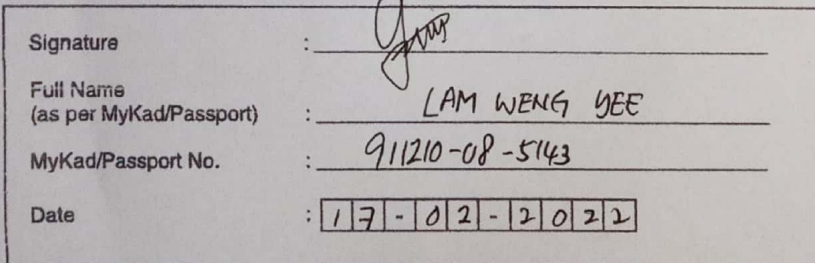 Signature :
Full Name
(as per MyKad/Passport) : LAM WENG YEE
MyKad/Passport No. : 911210-08-5143
Date : 17-02-2022